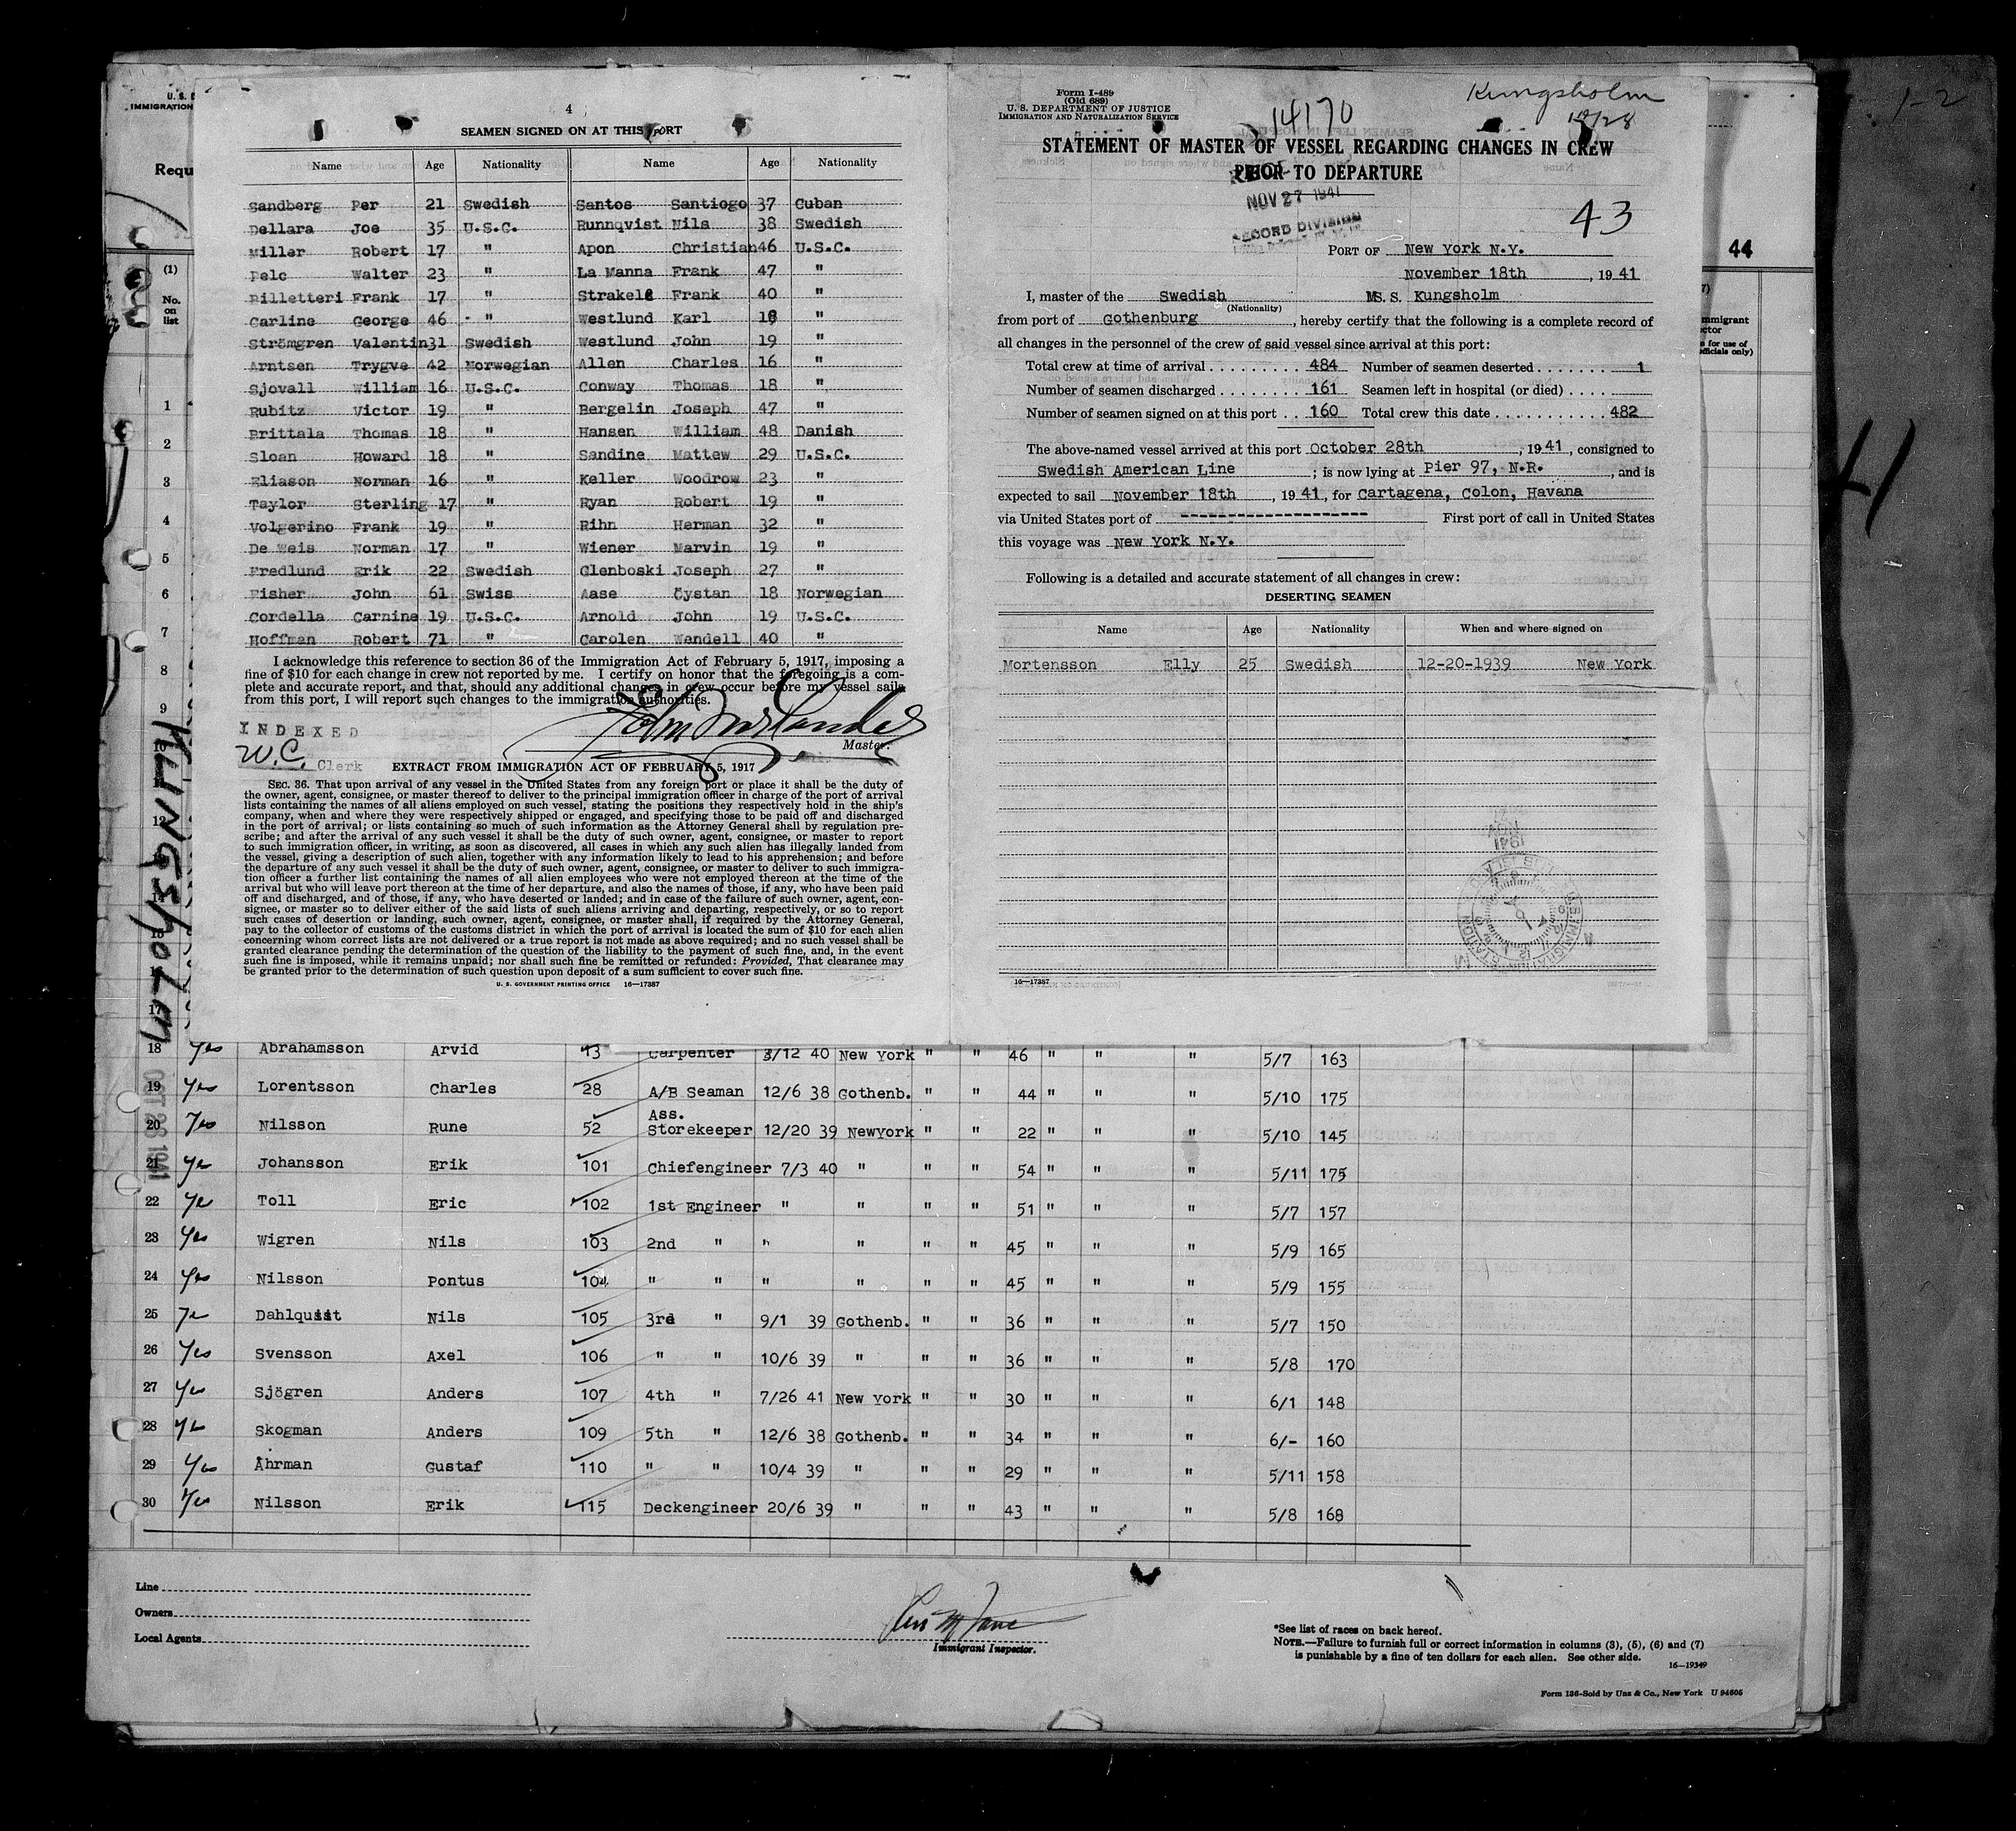 U. S. D
IMMIGRATION
Requ
(1)
No.
on
list
1
2
3
4
5
6
7
8
9
10
12
15
17
Kungsholm
OCT 28 1941
4
SEAMEN SIGNED ON AT THIS PORT
Name Age Nationality Name Age Nationality
Sandberg Per 21 Swedish Santos Santiogo 37 Cuban
Dellara Joe 35 U.S.C. Runnqvist Nils 38 Swedish
Miller Robert 17 " Apon Christian 46 U.S.C.
Pelc Walter 23 " La Manna Frank 47 "
Billetteri Frank 17 " Strakele Frank 40 "
Carline George 46 " Westlund Karl 18 "
Strömgren Valentin 31 Swedish Westlund John 19 "
Arntsen Trygve 42 Norwegian Allen Charles 16 "
Sjovall William 16 U.S.C. Conway Thomas 18 "
Rubitz Victor 19 " Bergelin Joseph 47 "
Brittala Thomas 18 " Hansen William 48 Danish
Sloan Howard 18 " Sandine Mattew 29 U.S.C.
Eliason Norman 16 " Keller Woodrow 23 "
Taylor Sterling 17 " Ryan Robert 19 "
Volgerino Frank 19 " Rihn Herman 32 "
De Weis Norman 17 " Wiener Marvin 19 "
Fredlund Erik 22 Swedish Glenboski Joseph 27 "
Fisher John 61 Swiss Aase Öystan 18 Norwegian
Cordella Carnine 19 U.S.C. Arnold John 19 U.S.C.
Hoffman Robert 71 " Carolen Wendell 40 "
I acknowledge this reference to section 36 of the Immigration Act of February 5, 1917, imposing a
fine of $10 for each change in crew not reported by me. I certify on honor that the foregoing is a com-
plete and accurate report, and that, should any additional changes in crew occur before my vessel sails
from this port, I will report such changes to the immigration authorities.
INDEXED
W.C. Clerk
Master.
EXTRACT FROM IMMIGRATION ACT OF FEBRUARY 5, 1917
SEC. 36. That upon arrival of any vessel in the United States from any foreign port or place it shall be the duty of
the owner, agent, consignee, or master thereof to deliver to the principal immigration officer in charge of the port of arrival
lists containing the names of all aliens employed on such vessel, stating the positions they respectively hold in the ship's
company, when and where they were respectively shipped or engaged, and specifying those to be paid off and discharged
in the port of arrival; or lists containing so much of such information as the Attorney General shall by regulation pre-
scribe; and after the arrival of any such vessel it shall be the duty of such owner, agent, consignee, or master to report
to such immigration officer, in writing, as soon as discovered, all cases in which any such alien has illegally landed from
the vessel, giving a description of such alien, together with any information likely to lead to his apprehension; and before
the departure of any such vessel it shall be the duty of such owner, agent, consignee, or master to deliver to such immigra-
tion officer a further list containing the names of all alien employees who were not employed thereon at the time of the
arrival but who will leave port thereon at the time of her departure, and also the names of those, if any, who have been paid
off and discharged, and of those, if any, who have deserted or landed; and in case of the failure of such owner, agent, con-
signee, or master so to deliver either of the said lists of such aliens arriving and departing, respectively, or so to report
such cases of desertion or landing, such owner, agent, consignee, or master shall, if required by the Attorney General,
pay to the collector of customs of the customs district in which the port of arrival is located the sum of $10 for each alien
concerning whom correct lists are not delivered or a true report is not made as above required; and no such vessel shall be
granted clearance pending the determination of the question of the liability to the payment of such fine, and, in the event
such fine is imposed, while it remains unpaid; nor shall such fine be remitted or refunded: Provided, That clearance may
be granted prior to the determination of such question upon deposit of a sum sufficient to cover such fine.
U. S. GOVERNMENT PRINTING OFFICE 16—17387
Form I-489
(Old 689)
U. S. DEPARTMENT OF JUSTICE
IMMIGRATION AND NATURALIZATION SERVICE
14170
Kungsholm
10/28
STATEMENT OF MASTER OF VESSEL REGARDING CHANGES IN CREW
PRIOR TO DEPARTURE
NOV 27 1941
RECORD DIVISION
43
PORT OF New York N.Y.
November 18th, 1941
I, master of the Swedish MS. S. Kungsholm
(Nationality)
from port of Gothenburg, hereby certify that the following is a complete record of
all changes in the personnel of the crew of said vessel since arrival at this port:
Total crew at time of arrival 484 Number of seamen deserted 1
Number of seamen discharged 161 Seamen left in hospital (or died)
Number of seamen signed on at this port 160 Total crew this date 482
The above-named vessel arrived at this port October 28th, 1941, consigned to
Swedish American Line; is now lying at Pier 97, N.R., and is
expected to sail November 18th, 1941, for Cartagena, Colon, Havana
via United States port of -------------------- First port of call in United States
this voyage was New York N.Y.
Following is a detailed and accurate statement of all changes in crew:
DESERTING SEAMEN
Name Age Nationality When and where signed on
Mortensson Elly 25 Swedish 12-20-1939 New York
16—17387
44
1-2
41
18 Yes Abrahamsson Arvid 13 Carpenter 3/12 40 New York " " 46 " " " 5/7 163
19 Yes Lorentsson Charles 28 A/B Seaman 12/6 38 Gothenb. " " 44 " " " 5/10 175
20 Yes Nilsson Rune 52 Ass. Storekeeper 12/20 39 Newyork " " 22 " " " 5/10 145
21 Yes Johansson Erik 101 Chiefengineer 7/3 40 " " " 54 " " " 5/11 175
22 Yes Toll Eric 102 1st Engineer " " " " 51 " " " 5/7 157
23 Yes Wigren Nils 103 2nd " " " " " 45 " " " 5/9 165
24 Yes Nilsson Pontus 104 " " " " " " 45 " " " 5/9 155
25 Yes Dahlquist Nils 105 3rd " 9/1 39 Gothenb. " " 36 " " " 5/7 150
26 Yes Svensson Axel 106 " " 10/6 39 " " " 36 " " " 5/8 170
27 Yes Sjögren Anders 107 4th " 7/26 41 New York " " 30 " " " 6/1 148
28 Yes Skogman Anders 109 5th " 12/6 38 Gothenb. " " 34 " " " 6/- 160
29 Yes Åhrman Gustaf 110 " " 10/4 39 " " " 29 " " " 5/11 158
30 Yes Nilsson Erik 115 Deckengineer 20/6 39 " " " 43 " " " 5/8 168
Line
Owners
Local Agents
Immigrant Inspector.
*See list of races on back hereof.
NOTE.—Failure to furnish full or correct information in columns (3), (5), (6) and (7)
is punishable by a fine of ten dollars for each alien. See other side.
16—19349
Form 136-Sold by Unz & Co., New York U 94605